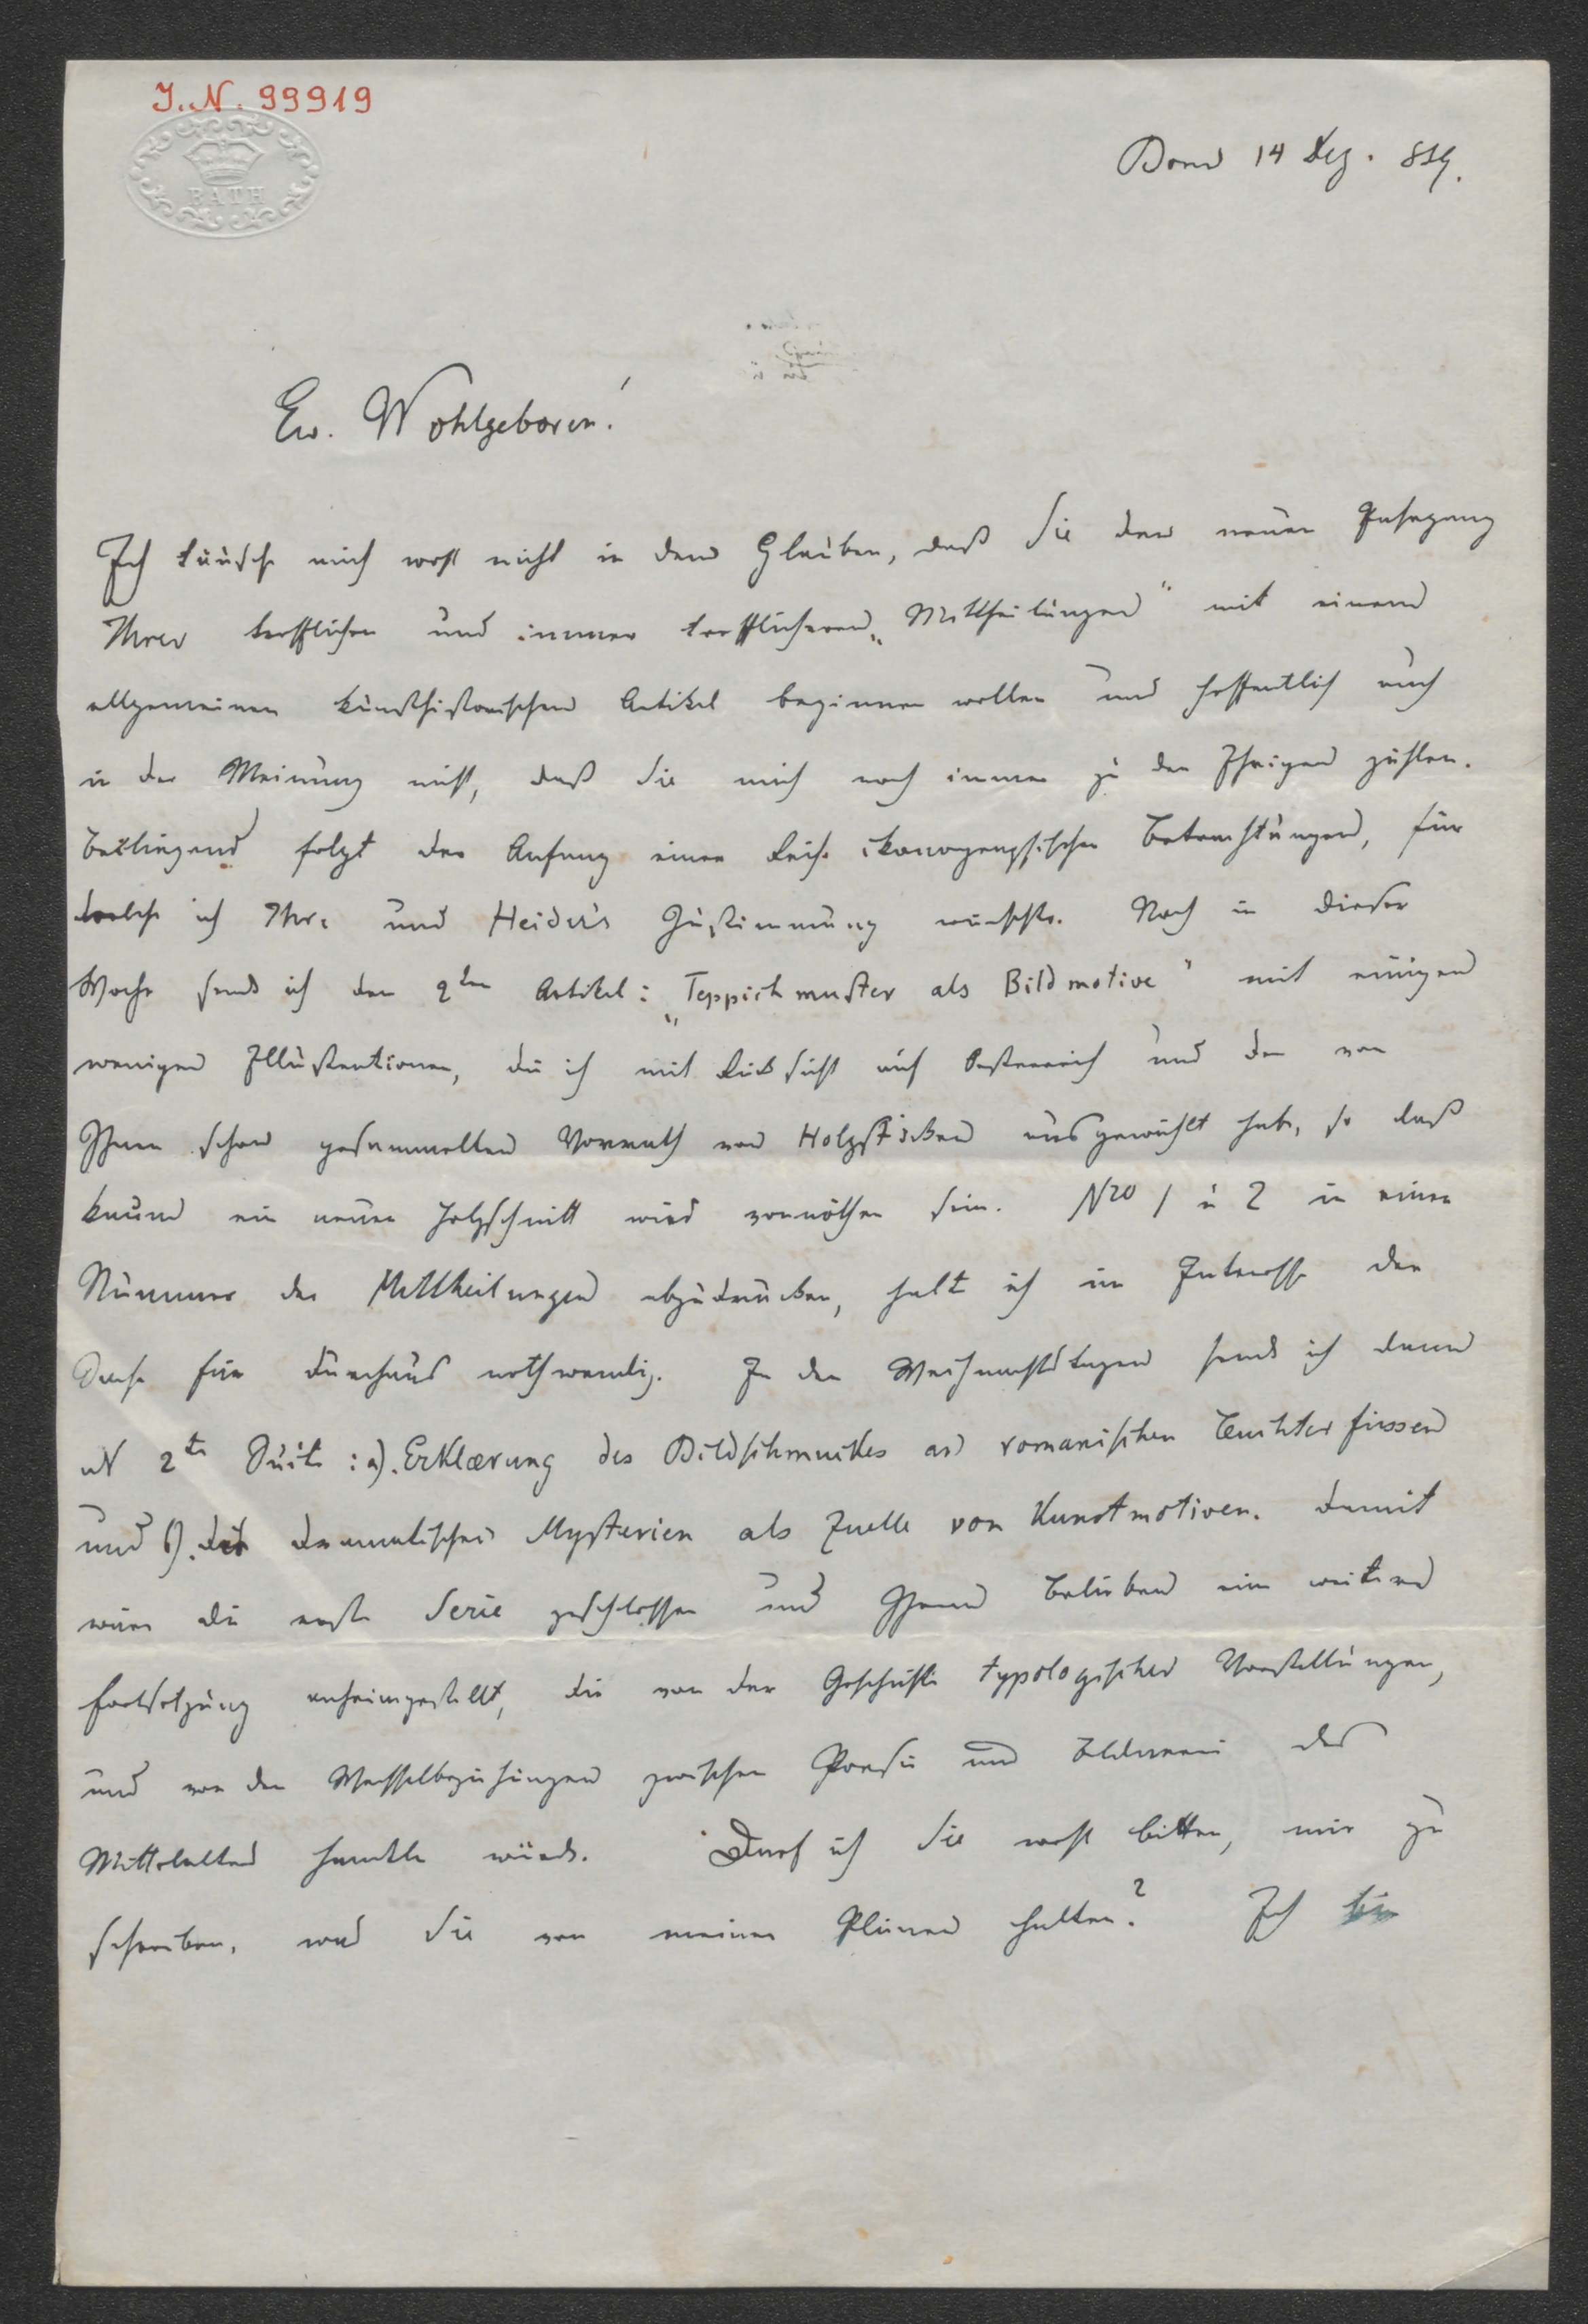 J. N. 99919
BATH
Bonn 14 Dez. 859.
Ew. Wohlgeboren!
Ich täusche mich wohl nicht in dem Glauben, daß Sie den neuen Jahrgang
Ihrer trefflichen und immer trefflicheren „Mittheilungen" mit einem
allgemeinen kunsthistorischen Artikel beginnen wollen und hoffentlich auch
in der Meinung nicht, daß Sie mich noch immer zu den Ihrigen zählen.
Beiliegend folgt der Anfang einer Reihe ikonographischer Betrachtungen, für
welche ich Ihre und Heider's Zustimmung wünschte. Noch in dieser
Woche sende ich den 2ten Artikel: „Teppichmuster als Bildmotive" mit einigen
wenigen Illustrationen, die ich mit Rücksicht auf Oesterreich und den von
Ihnen schon gesammelten Vorrath von Holzstöcken ausgewählt habe, so daß
kaum ein neuer Holzschnitt wird vonnöthen sein. Nro 1 u 2 in einer
Nummer der Mittheilungen abzudrucken, halte ich im Interesse der
Sache für durchaus nothwendig. In den Weihnachtstagen sende ich dann
als 2te Suite: a). Erklærung des Bildschmuckes an romanischen Leuchterfüssen
und b). die dramatischen Mysterien als Quelle von Kunstmotiven. Damit
wäre die erste Serie geschlossen und Ihrem Belieben eine weitere
Fortsetzung anheimgestellt, die von der Geschichte typologischer Vorstellungen,
und von den Wechselbeziehungen zwischen Poesie und Bildnerei des
Mittelalters handeln würde. Darf ich Sie wohl bitten, mir zu
schreiben, was Sie von meinen Plänen halten? Ich bin